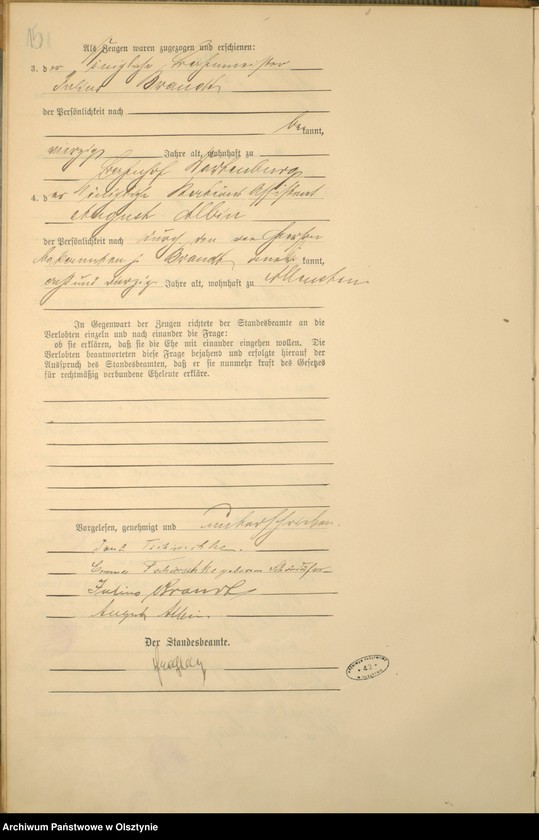 Als Zeugen waren zugezogen und erschienen:
3. der Königliche Bahnmeister
Julius Brandt
der Persönlichkeit nach
bekannt,
vierzig Jahre alt, wohnhaft zu
Bahnhof Wartenburg
4. der Königliche Stations Assistent
August Albin
der Persönlichkeit nach durch den
Brandt kannt,
acht und vierzig Jahre alt, wohnhaft zu Allenstein.
In Gegenwart der Zeugen richtete der Standesbeamte an die
Verlobten einzeln und nach einander die Frage:
ob sie erklären, daß sie die Ehe mit einander eingehen wollen. Die
Verlobten beantworteten diese Frage bejahend und erfolgte hierauf der
Ausspruch des Standesbeamten, daß er sie nunmehr kraft des Gesetzes
für rechtmäßig verbundene Eheleute erkläre.
Vorgelesen, genehmigt und unterschrieben.
geborene
Julius Brandt
August Albin
Der Standesbeamte.
Archiwum Państwowe w Olsztynie